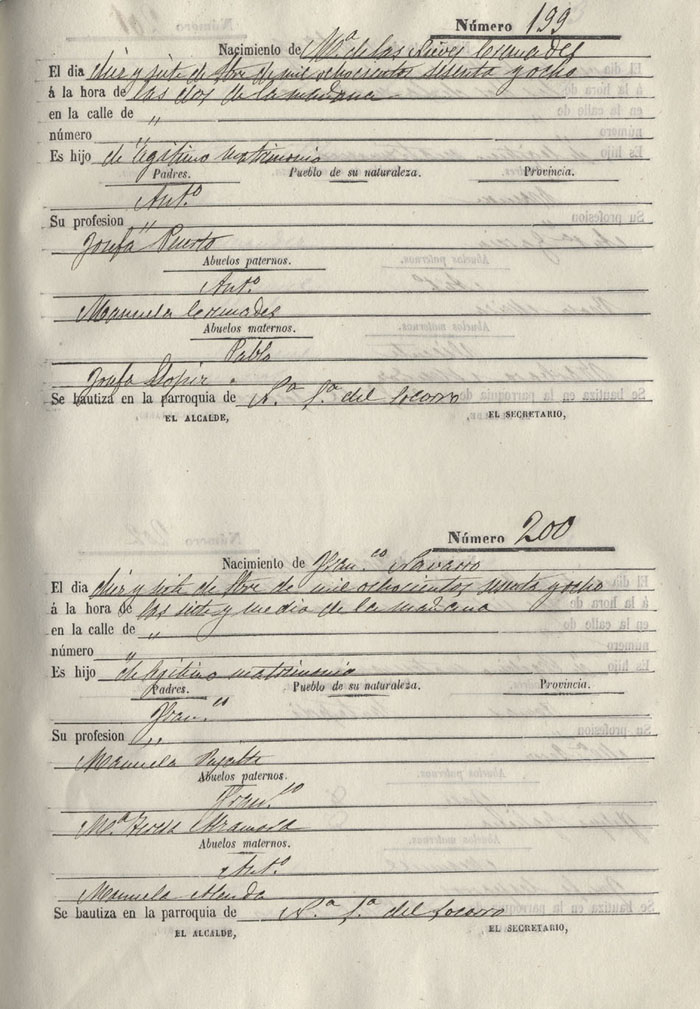 Número 199
Nacimiento de Mª de las Nieves Cremades
El dia diez y siete de fbre de mil ochocientos sesenta y ocho
á la hora de las dos de la mañana
en la calle de "
número "
Es hijo de legitimo matrimonio
Padres. Pueblo de su naturaleza. Provincia.
Antº
Su profesion "
Josefa Puerto
Abuelos paternos.
Antº
Manuela Cremades
Abuelos maternos.
Pablo
Josefa Lopez
Se bautiza en la parroquia de Nª Sª del Socorro
EL ALCALDE, EL SECRETARIO,
Número 200
Nacimiento de Franco Navarro
El dia diez y siete de fbre de mil ochocientos sesenta y ocho
á la hora de las siete y media de la mañana
en la calle de "
número "
Es hijo de legitimo matrimonio
Padres. Pueblo de su naturaleza. Provincia.
Franco
Su profesion "
Manuela
Abuelos paternos.
Franco
Mª Teresa
Abuelos maternos.
Antº
Manuela
Se bautiza en la parroquia de Nª Sª del Socorro
EL ALCALDE, EL SECRETARIO,